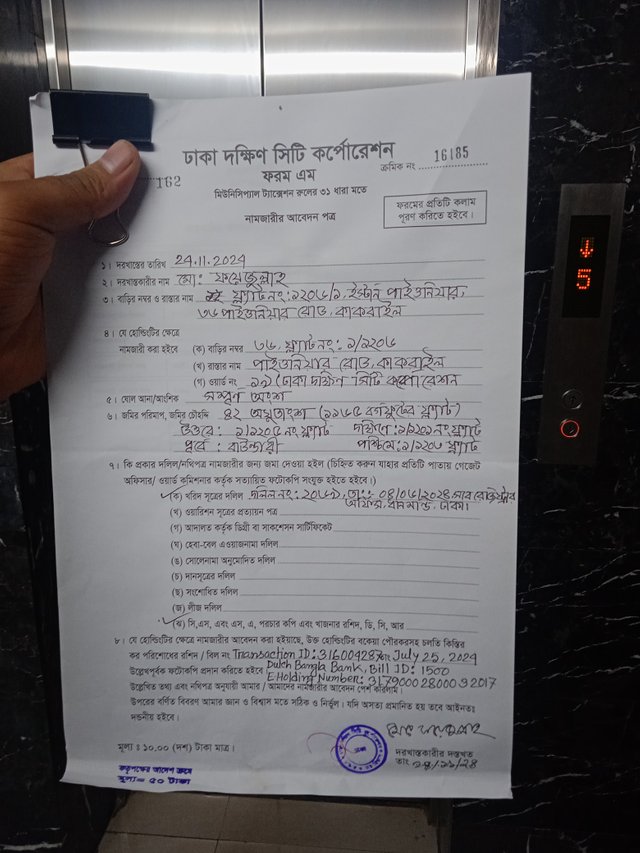 ঢাকা দক্ষিণ সিটি কর্পোরেশন
ক্রমিক নং 16185
162
ফরম এম
মিউনিসিপ্যাল ট্যাক্সেশন রুলের ৩১ ধারা মতে
নামজারীর আবেদন পত্র
ফরমের প্রতিটি কলাম
পূরণ করিতে হইবে।
১। দরখাস্তের তারিখ 24.11.2024
২। দরখাস্তকারীর নাম মো: ফয়েজুল্লাহ
৩। বাড়ির নম্বর ও রাস্তার নাম ফ্ল্যাট নং: ১২০৬/১, ইস্টার্ন পাইওনিয়ার,
৩৬ পাইওনিয়ার রোড, কাকরাইল
৪। যে হোল্ডিংটির ক্ষেত্রে
নামজারী করা হইবে (ক) বাড়ির নম্বর ৩৬, ফ্ল্যাট নং: ১/১২০৬
(খ) রাস্তার নাম পাইওনিয়ার রোড, কাকরাইল
(গ) ওয়ার্ড নং ১৯ (ঢাকা দক্ষিণ সিটি কর্পোরেশন
৫। ষোল আনা/আংশিক সম্পূর্ণ অংশ
৬। জমির পরিমাপ, জমির চৌহদ্দি ৪২ অযুতাংশ (১১৬৫ বর্গফুটের ফ্ল্যাট)
উত্তরে: ১/১২০৫ নং ফ্ল্যাট দক্ষিণে: ১/১২০১ নং ফ্ল্যাট
পূর্বে : বাউন্ডারী পশ্চিমে: ১/১২০৩ ফ্ল্যাট
৭। কি প্রকার দলিল/নথিপত্র নামজারীর জন্য জমা দেওয়া হইল (চিহ্নিত করুন যাহার প্রতিটি পাতায় গেজেট
অফিসার/ ওয়ার্ড কমিশনার কর্তৃক সত্যায়িত ফটোকপি সংযুক্ত হইতে হইবে।)
(ক) খরিদ সূত্রের দলিল দলিল নং: ২০৬১, তাং- 04/06/2024, সাব রেজিস্ট্রার
অফিস, ধানমন্ডি, ঢাকা।
(খ) ওয়ারিশন সূত্রের প্রত্যায়ন পত্র
(গ) আদালত কর্তৃক ডিগ্রী বা সাকশেসন সার্টিফিকেট
(ঘ) হেবা-বেল এওয়াজনামা দলিল
(ঙ) সোলেনামা অনুমোদিত দলিল
(চ) দানসূত্রের দলিল
(ছ) সংশোধিত দলিল
(জ) লীজ দলিল
(ঝ) সি,এস, এবং এস, এ, পরচার কপি এবং খাজনার রশিদ, ডি, সি, আর
৮। যে হোল্ডিংটির ক্ষেত্রে নামজারীর আবেদন করা হইয়াছে, উক্ত হোল্ডিংটির বকেয়া পৌরকরসহ চলতি কিস্তির
কর পরিশোধের রশিদ / বিল নং Transaction ID: 316004287 তাং July 25, 2024
উল্লেখপূর্বক ফটোকপি প্রদান করিতে হইবে Dutch Bangla Bank, Bill ID: 1500
E Holding Number: 31790002800032017
উল্লেখিত তথ্য এবং নথিপত্র অনুযায়ী আমার / আমাদের নামজারীর আবেদন পেশ করিলাম।
উপরের বর্ণিত বিবরণ আমার জ্ঞান ও বিশ্বাস মতে সঠিক ও নির্ভুল। যদি অসত্য প্রমানিত হয় তবে আইনতঃ
দন্ডনীয় হইবে।
মূল্য : ১০.০০ (দশ) টাকা মাত্র।
দরখাস্তকারীর দস্তখত
তাং ২৪/১১/২৪
কর্তৃপক্ষের আদেশ ক্রমে
মূল্য= ৫০ টাকা
5